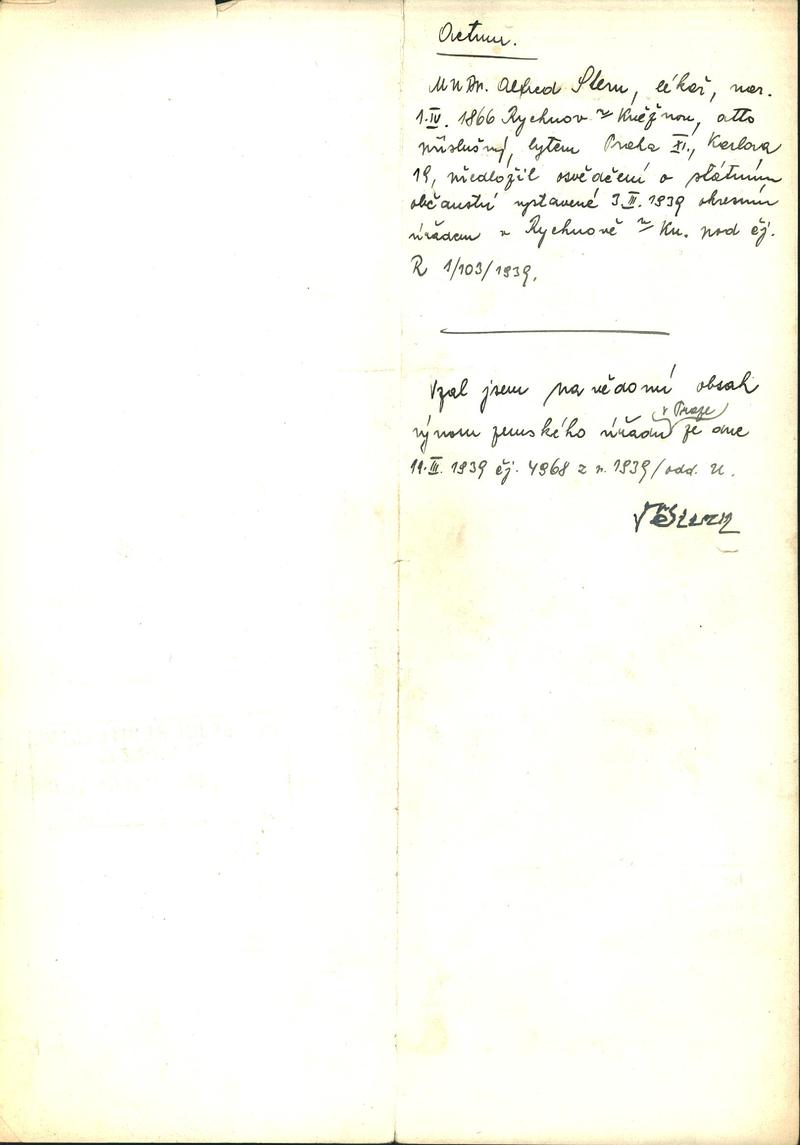 Actum.
MUDr. Alfred Stern, lékař, nar.
1.IV. 1866 Rychnov n Kněžnou, dtto
příslušný, bytem Praha XI., Karlova
19, předložil osvědčení o státním
občanství vystavené 3.II.1939 okresním
úřadem v Rychnově n Kn. pod čj.
R 1/103/1939.
Vzal jsem na vědomí obsah
výnosu zemského úřadu v Praze ze dne
11.III. 1939 čj. 4968 z r. 1939/odd. U.